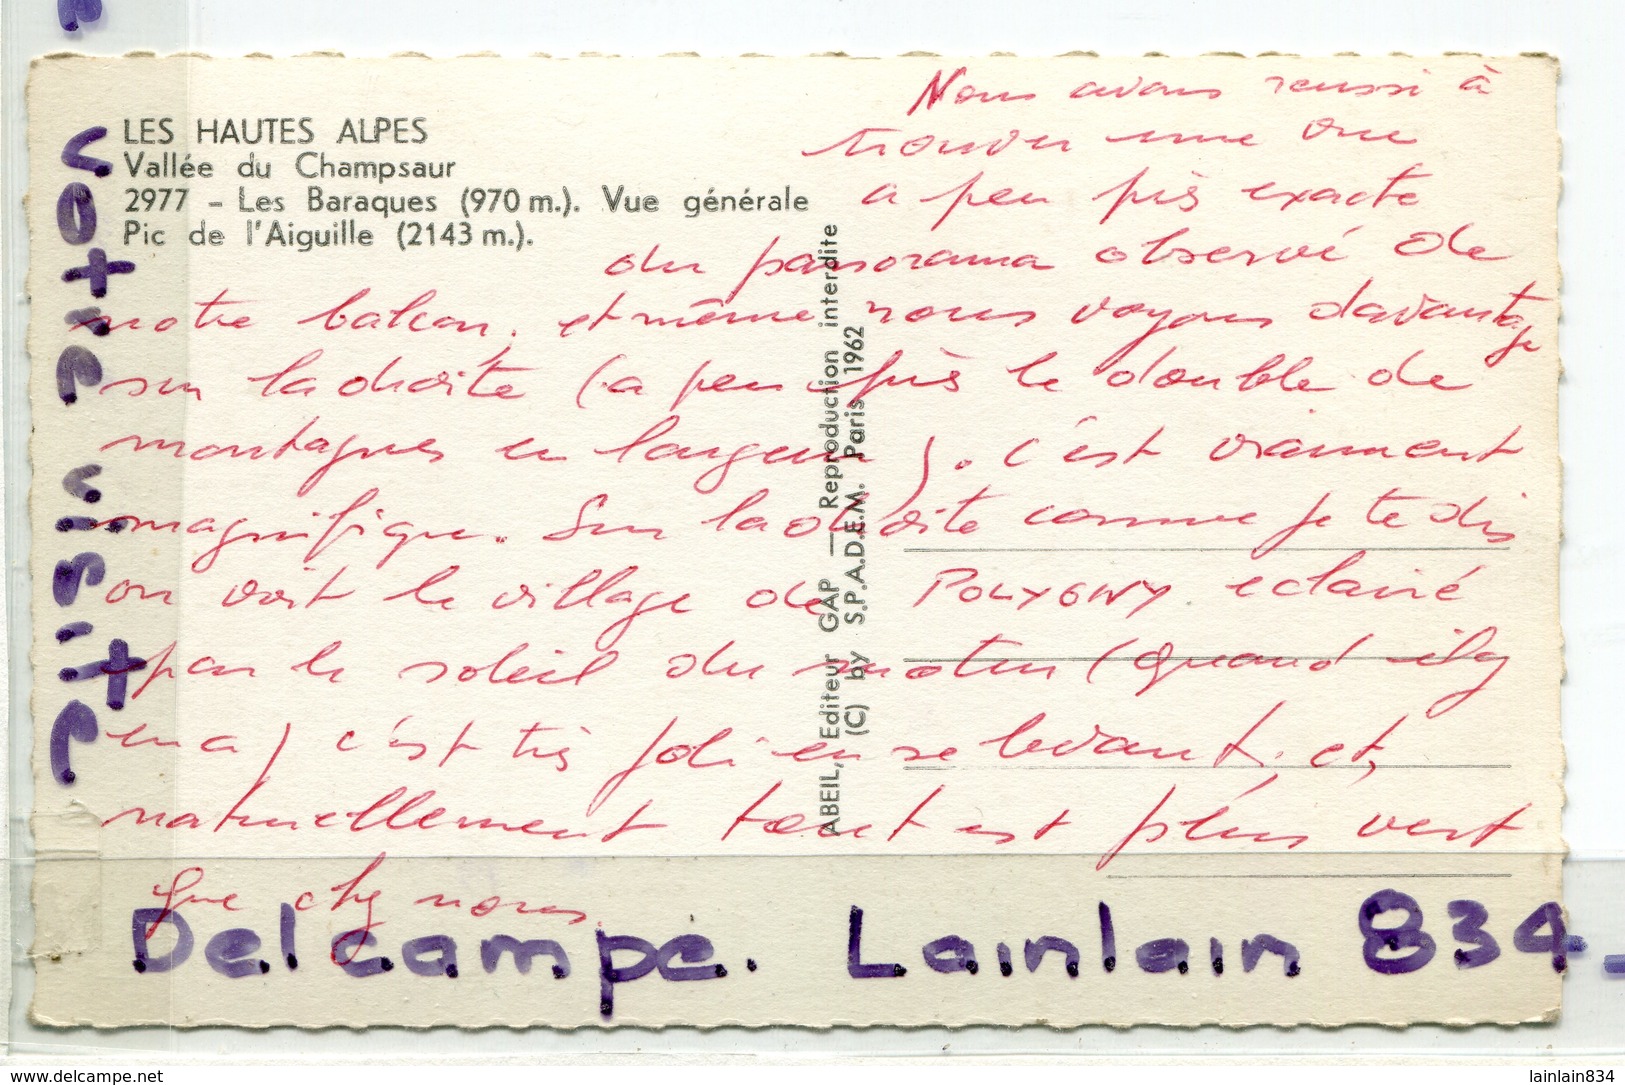 LES HAUTES ALPES
Vallée du Champsaur
2977 - Les Baraques (970 m.). Vue générale
Pic de l'Aiguille (2143 m.).
Nous avons reussi à
trouver une vue
a peu près exacte
du panorama observé de
notre balcon. et même nous voyons davantage
sur la droite (a peu près le double de
montagnes en largeur). c'est vraiment
magnifique. Sur la droite comme je te dis
on voit le village de POLYGNY. eclairé
par le soleil du matin (quand il y
en a) c'est très joli en se levant. et,
naturellement tout est plus vert
que chez nous.
ABEIL, Editeur GAP — Reproduction interdite
(C) by S.P.A.D.E.M. Paris 1962
votre visite
Delcampe. Lainlain 834
www.delcampe.net
lainlain834